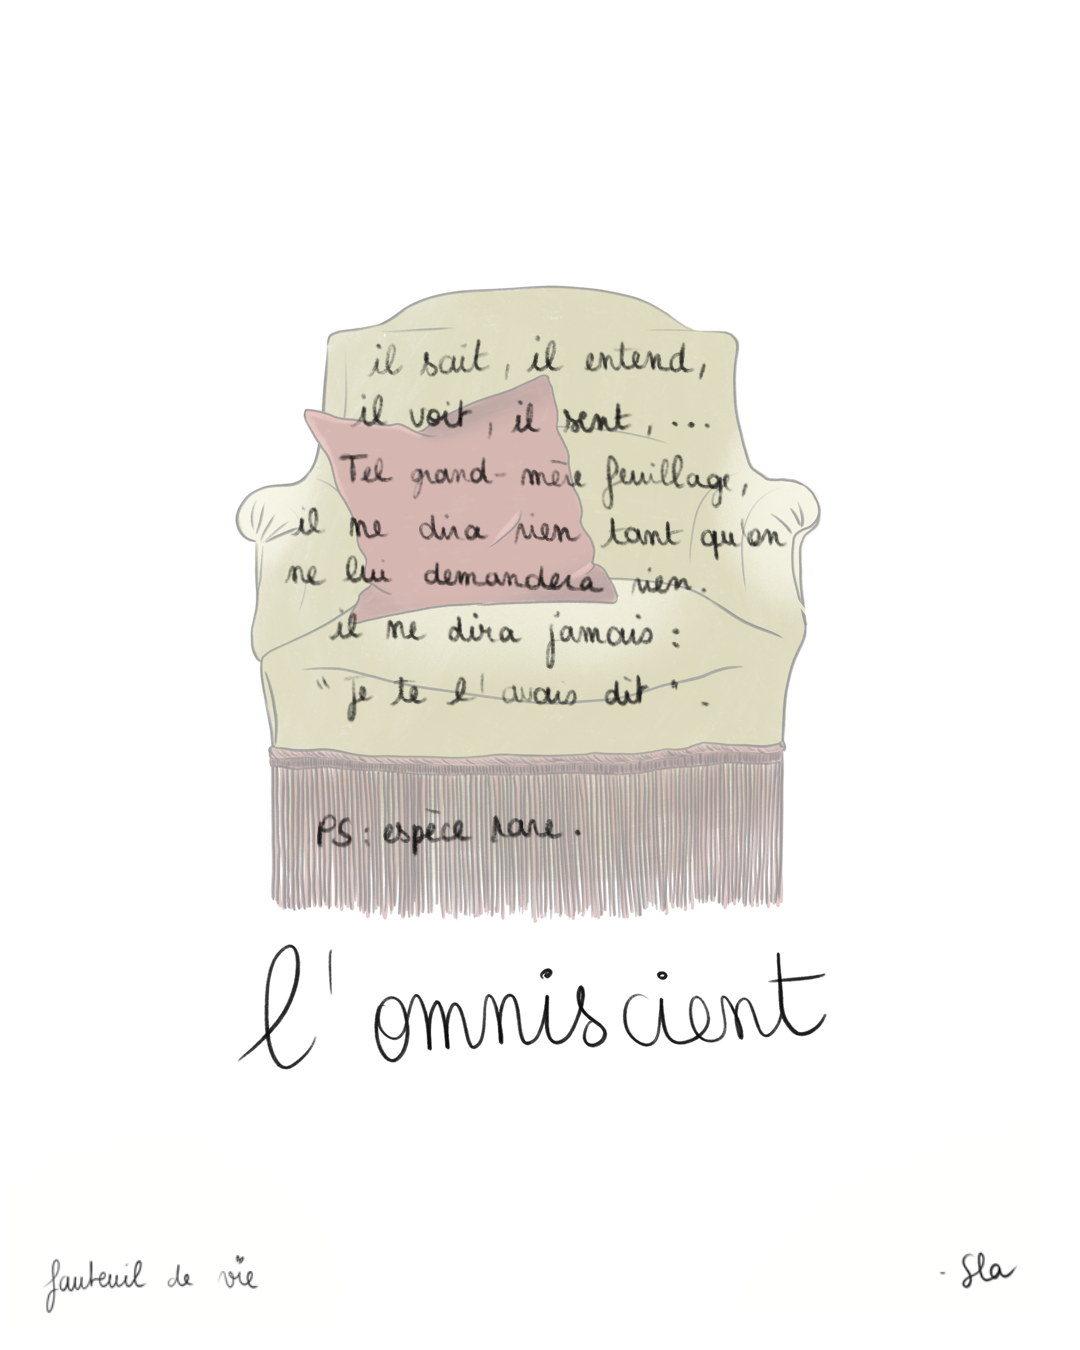 il sait, il entend,
il voit, il sent, ...
Tel grand-mère feuillage,
il ne dira rien tant qu'on
ne lui demandera rien.
il ne dira jamais :
"je te l'avais dit".
PS : espèce rare.
l'omniscient
fauteuil de vie
- Sla